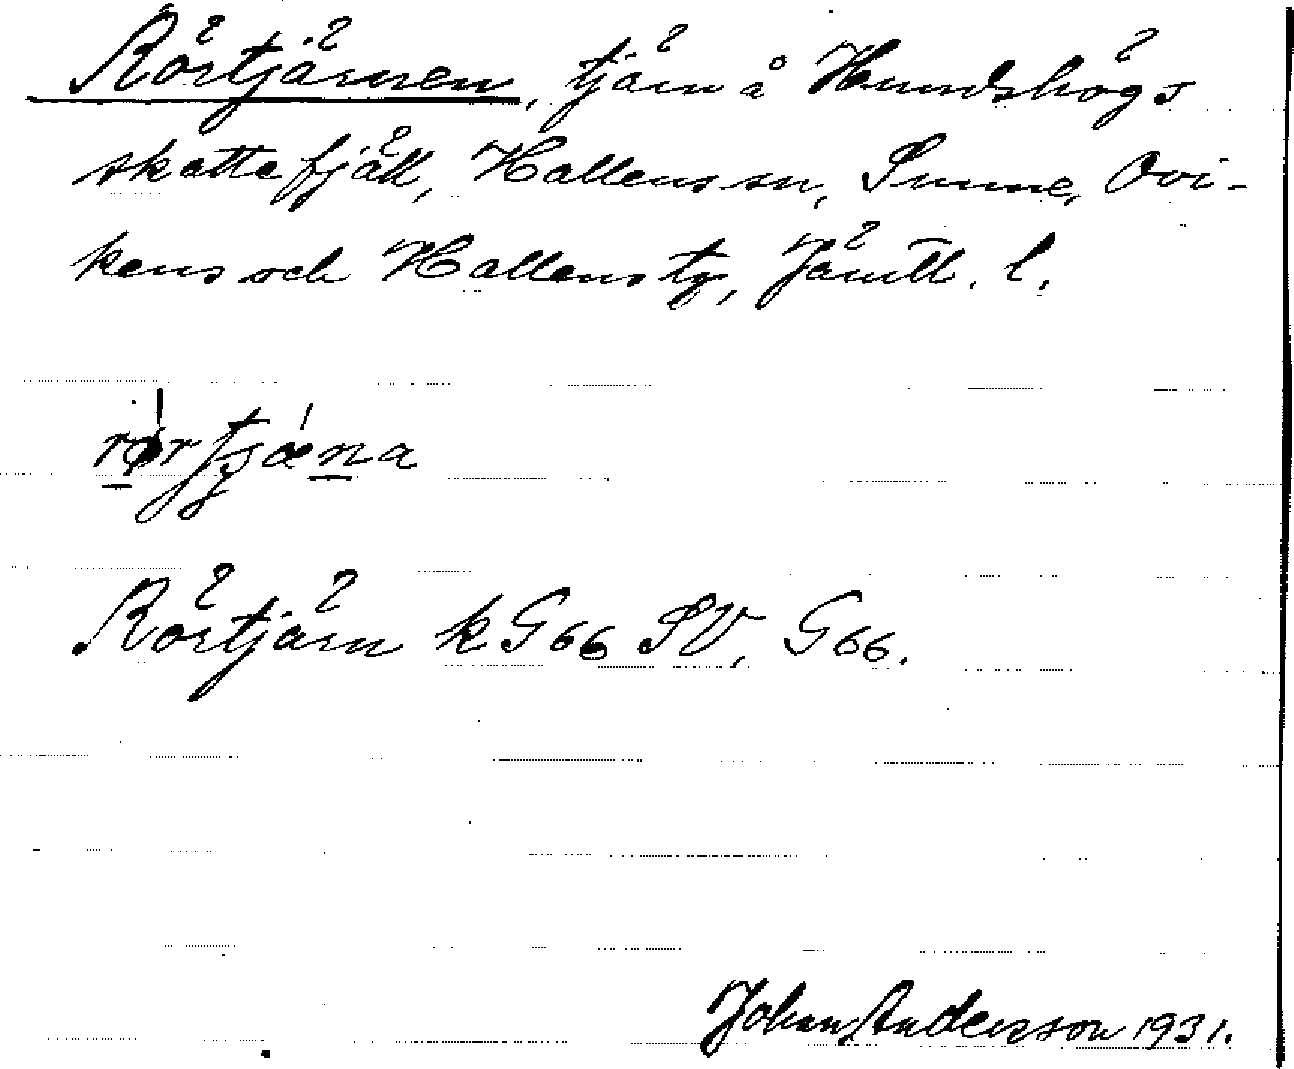 Rörtjärnen, tjärn å Hundshögs
skattefjäll, Hallens sn, Sunne, Ovi-
kens och Hallens tg, Jämtl. l.
rørtjæna
Rörtjärn k G66 SV, G66.
Johan Andersson 1931.